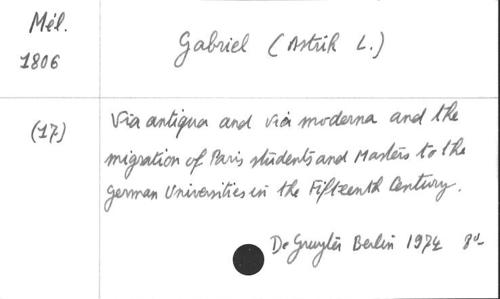 Mél.
1806
Gabriel (Astrik L.)
(17)
Via antiqua and via moderna and the
migration of Paris students and Masters to the
german Universities in the Fifteenth Century.
De Gruyter Berlin 1974 8º